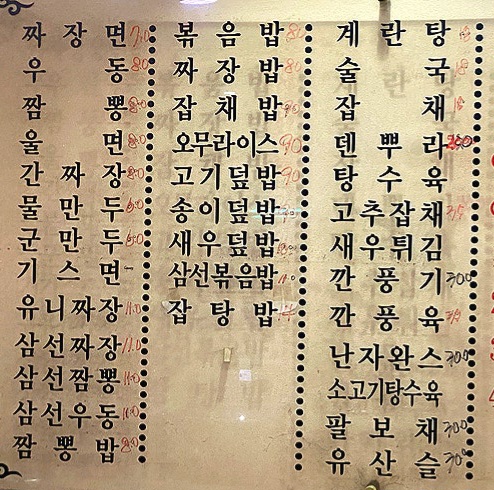 짜장면 7.0
우동 8.0
짬뽕 8.0
울면 8.0
간짜장 8.0
물만두 6.0
군만두 6.0
기스면
유니짜장 11.0
삼선짜장 11.0
삼선짬뽕 11.0
삼선우동 11.0
짬뽕밥 8.0
볶음밥 8.0
짜장밥 8.0
잡채밥 9.0
오무라이스 9.0
고기덮밥 9.0
송이덮밥
새우덮밥
삼선볶음밥 11.0
잡탕밥
계란탕
술국
잡채
덴뿌라
탕수육
고추잡채
새우튀김
깐풍기 30.0
깐풍육
난자완스 30.0
소고기탕수육
팔보채 30.0
유산슬 30.0